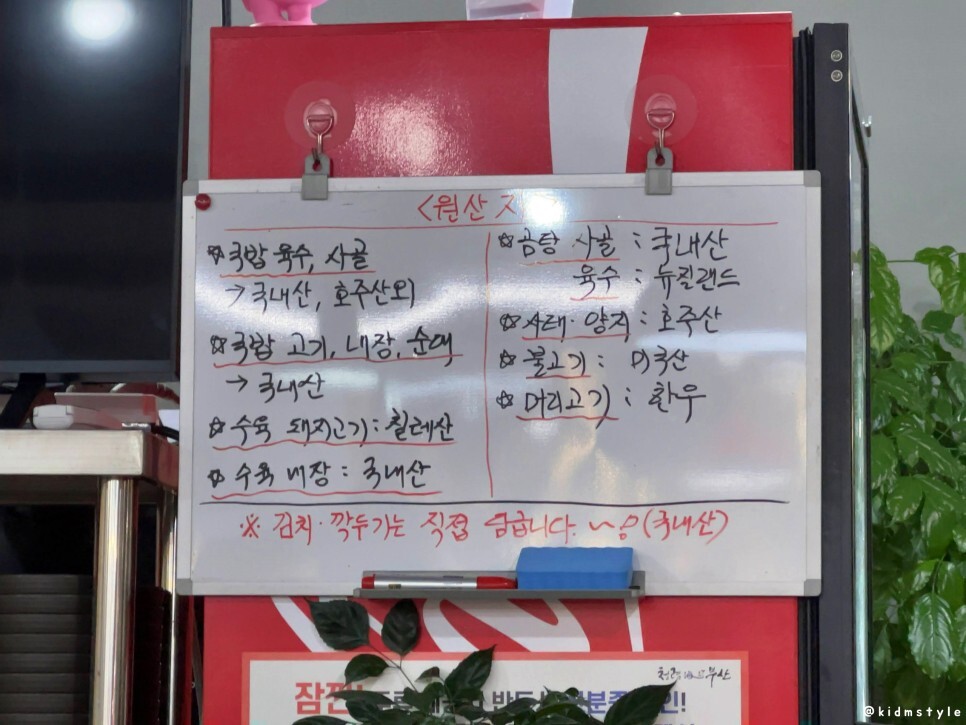 <원산지
☆ 국밥 육수, 사골
→ 국내산, 호주산외
☆ 국밥 고기, 내장, 순대
→ 국내산
☆ 수육 돼지고기 : 칠레산
☆ 수육 내장 : 국내산
☆ 곰탕 사골 : 국내산
육수 : 뉴질랜드
☆ 사태·양지 : 호주산
☆ 불고기 : 미국산
☆ 머리고기 : 한우
※ 김치·깍두기는 직접 담급니다. (국내산)
잠깐!
@kidmstyle